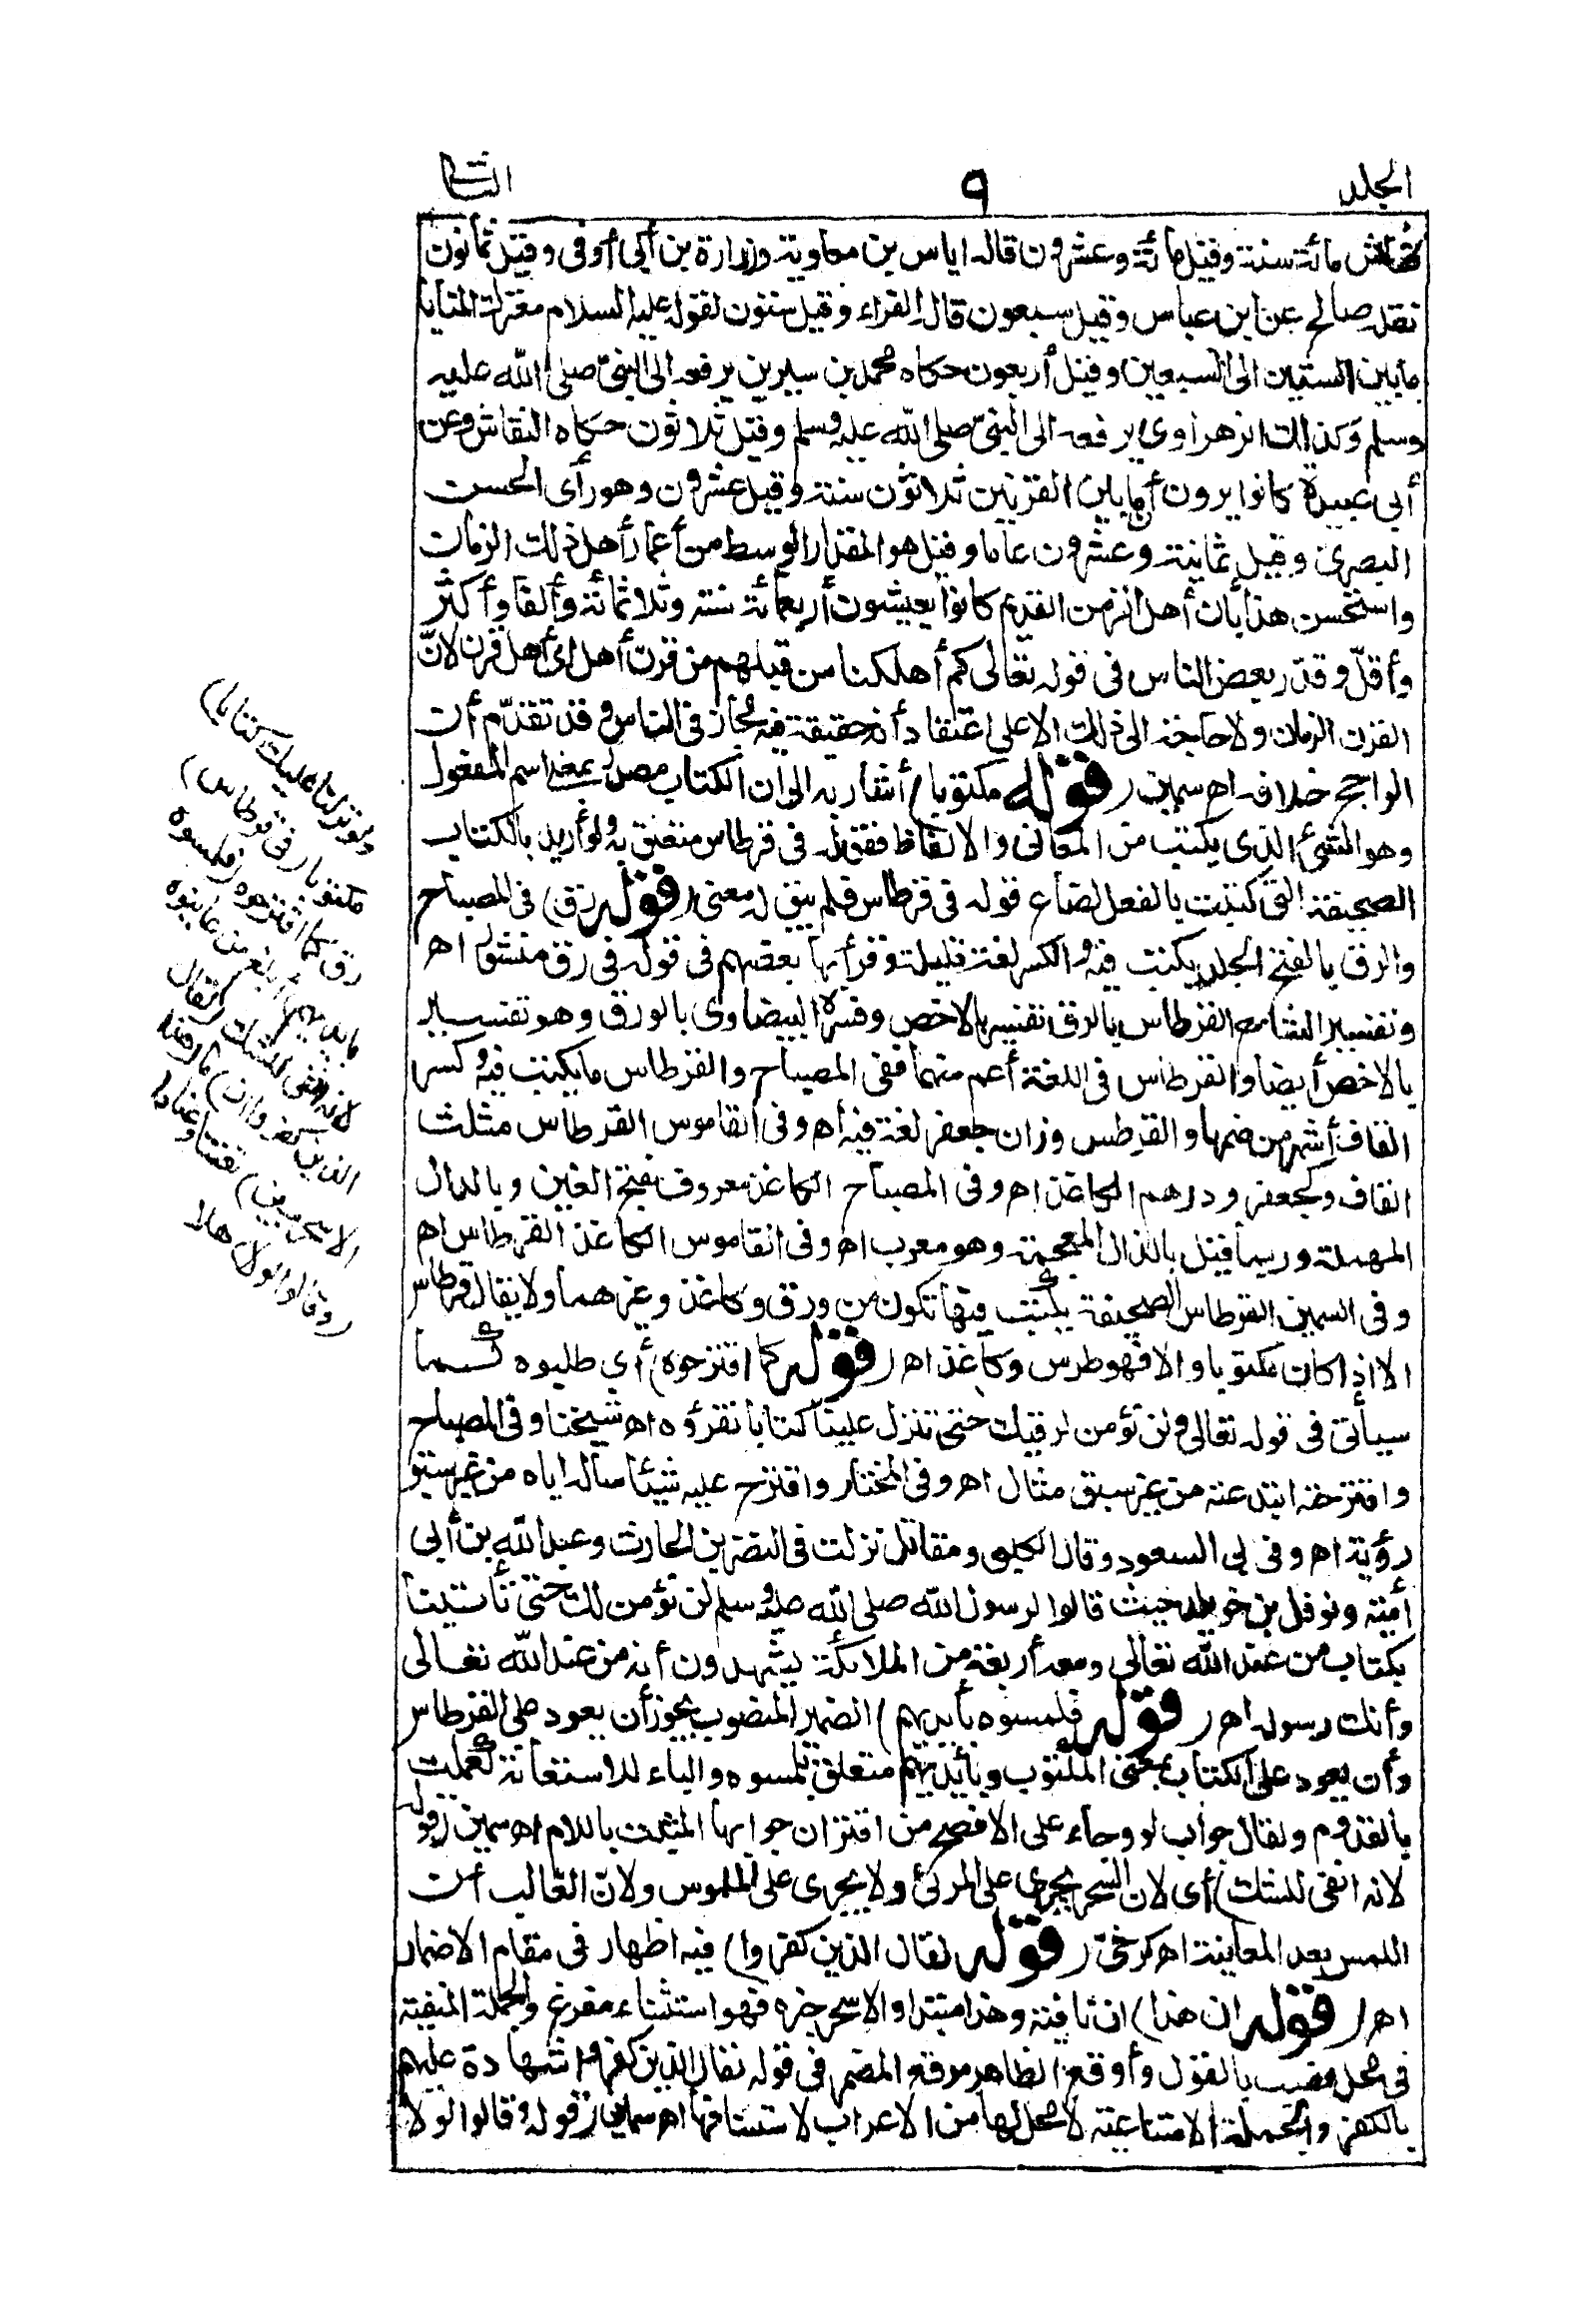 الجلد
٩
الثانى
تعاش مائة سنة وقيل مائة وعشرون قاله اياس بن معاوية وزرارة بن أبى أوفى وقيل ثمانون
نقله صالح عن ابن عباس وقيل سبعون قاله الفراء وقيل ستون لقوله عليه السلام معترك المنايا
مابين الستين الى السبعين وقيل أربعون حكاه محمد بن سيرين يرفعه الى النبى صلى الله عليه
وسلم وكذلك الزهراوى يرفعه الى النبى صلى الله عليه وسلم وقيل ثلاثون حكاه النقاش وعن
أبى عبيدة كانوا يرون أن مابين القرنين ثلاثون سنة وقيل عشرون وهو رأى الحسن
البصرى وقيل ثمانية وعشرون عاما وقيل هو المقدار الوسط من أعمار أهل ذلك الزمان
واستحسن هذا بأن أهل الزمن القديم كانوا يعيشون أربعمائة سنة وثلاثمائة وألفا وأكثر
وأقل وقدر بعض الناس فى قوله تعالى كم أهلكنا من قبلهم من قرن أهل أى أهل قرن لانّ
القرن الزمان ولا حاجة الى ذلك الا على اعتقاد أنه حقيقة فيه مجاز فى الناس وقد تقدّم أن
الراجح خلافه اه سمين (قوله مكتوبا) أشار به الى ان الكتاب مصدر بمعنى اسم المفعول
وهو الشئ الذى يكتب من المعانى والالفاظ فقوله فى قرطاس متعلق به ولو أريد بالكتاب
الصحيفة التى كتبت بالفعل لضاع قوله فى قرطاس فلم يبق له معنى (قوله رق) فى المصباح
والرق بالفتح الجلد يكتب فيه والكسر لغة قليلة وقرأ بها بعضهم فى قوله فى رق منشور اه
وتفسير الشارح القرطاس بالرق تفسير بالاخص وفسره البيضاوى بالورق وهو تفسير
بالاخص أيضا والقرطاس فى اللغة أعم منهما ففى المصباح والقرطاس ما يكتب فيه وكسر
القاف أشهر من ضمها والقرطس وزان جعفر لغة فيه اه وفى القاموس القرطاس مثلث
القاف وكجعفر ودرهم الكاغد اه وفى المصباح الكاغد معروف بفتح الغين وبالدال
المهملة وربما قيل بالذال المعجمة وهو معرب اه وفى القاموس الكاغد القرطاس اه
وفى السمين القرطاس الصحيفة يكتب فيها تكون من ورق وكاغد وغيرهما ولا يقال قرطاس
الا اذا كان مكتوبا والا فهو طرس وكاغد اه (قوله كما اقترحوه) أى طلبوه كما
سيأتى فى قوله تعالى ولن نؤمن لرقيك حتى تنزل علينا كتابا نقرؤه اه شيخنا وفى المصباح
واقترحته ابتدعته من غير سبق مثال اه وفى المختار واقترح عليه شيئا سأله اياه من غير سبق
رؤية اه وفى أبى السعود وقال الكلبى ومقاتل نزلت فى النضر بن الحارث وعبد الله بن أبى
أمية ونوفل بن خويلد حيث قالوا لرسول الله صلى الله عليه وسلم لن نؤمن لك حتى تأتينا
بكتاب من عند الله تعالى ومعه أربعة من الملائكة يشهدون أنه من عند الله تعالى
وأنك رسوله اه (قوله فلمسوه بأيديهم) الضمير المنصوب يجوز أن يعود على القرطاس
وأن يعود على الكتاب بمعنى المكتوب وبأيديهم متعلق بلمسوه والباء للاستعانة كعملت
بالقدوم ولقال جواب لو وجاء على الافصح من اقتران جوابها المثبت باللام اه سمين (قوله
لانه انفى للشك) أى لان السحر يجرى على المرئى ولا يجرى على الملموس ولانّ الغالب أن
اللمس بعد المعاينة اه كرخى (قوله لقال الذين كفروا) فيه اظهار فى مقام الاضمار
اه (قوله ان هذا) ان نافية وهذا مبتدا والا سحر خبره فهو استثناء مفرغ والجملة المنفية
فى محل نصب بالقول وأوقع الظاهر موقع المضمر فى قوله لقال الذين كفروا شهادة عليهم
بالكفر والجملة الامتناعية لا محل لها من الاعراب لاستئنافها اه سمين (قوله وقالوا لولا
ولو نزلنا عليك كتابا)
مكتوبا (فى قرطاس)
رق كما اقترحوه (فلمسوه
بأيديهم) أبلغ من عاينوه
لانه انفى للشك (لقال
الذين كفروا ان) ما (هذا
الا سحر مبين) تعنتا وعنادا
(وقالوا لولا) هلا